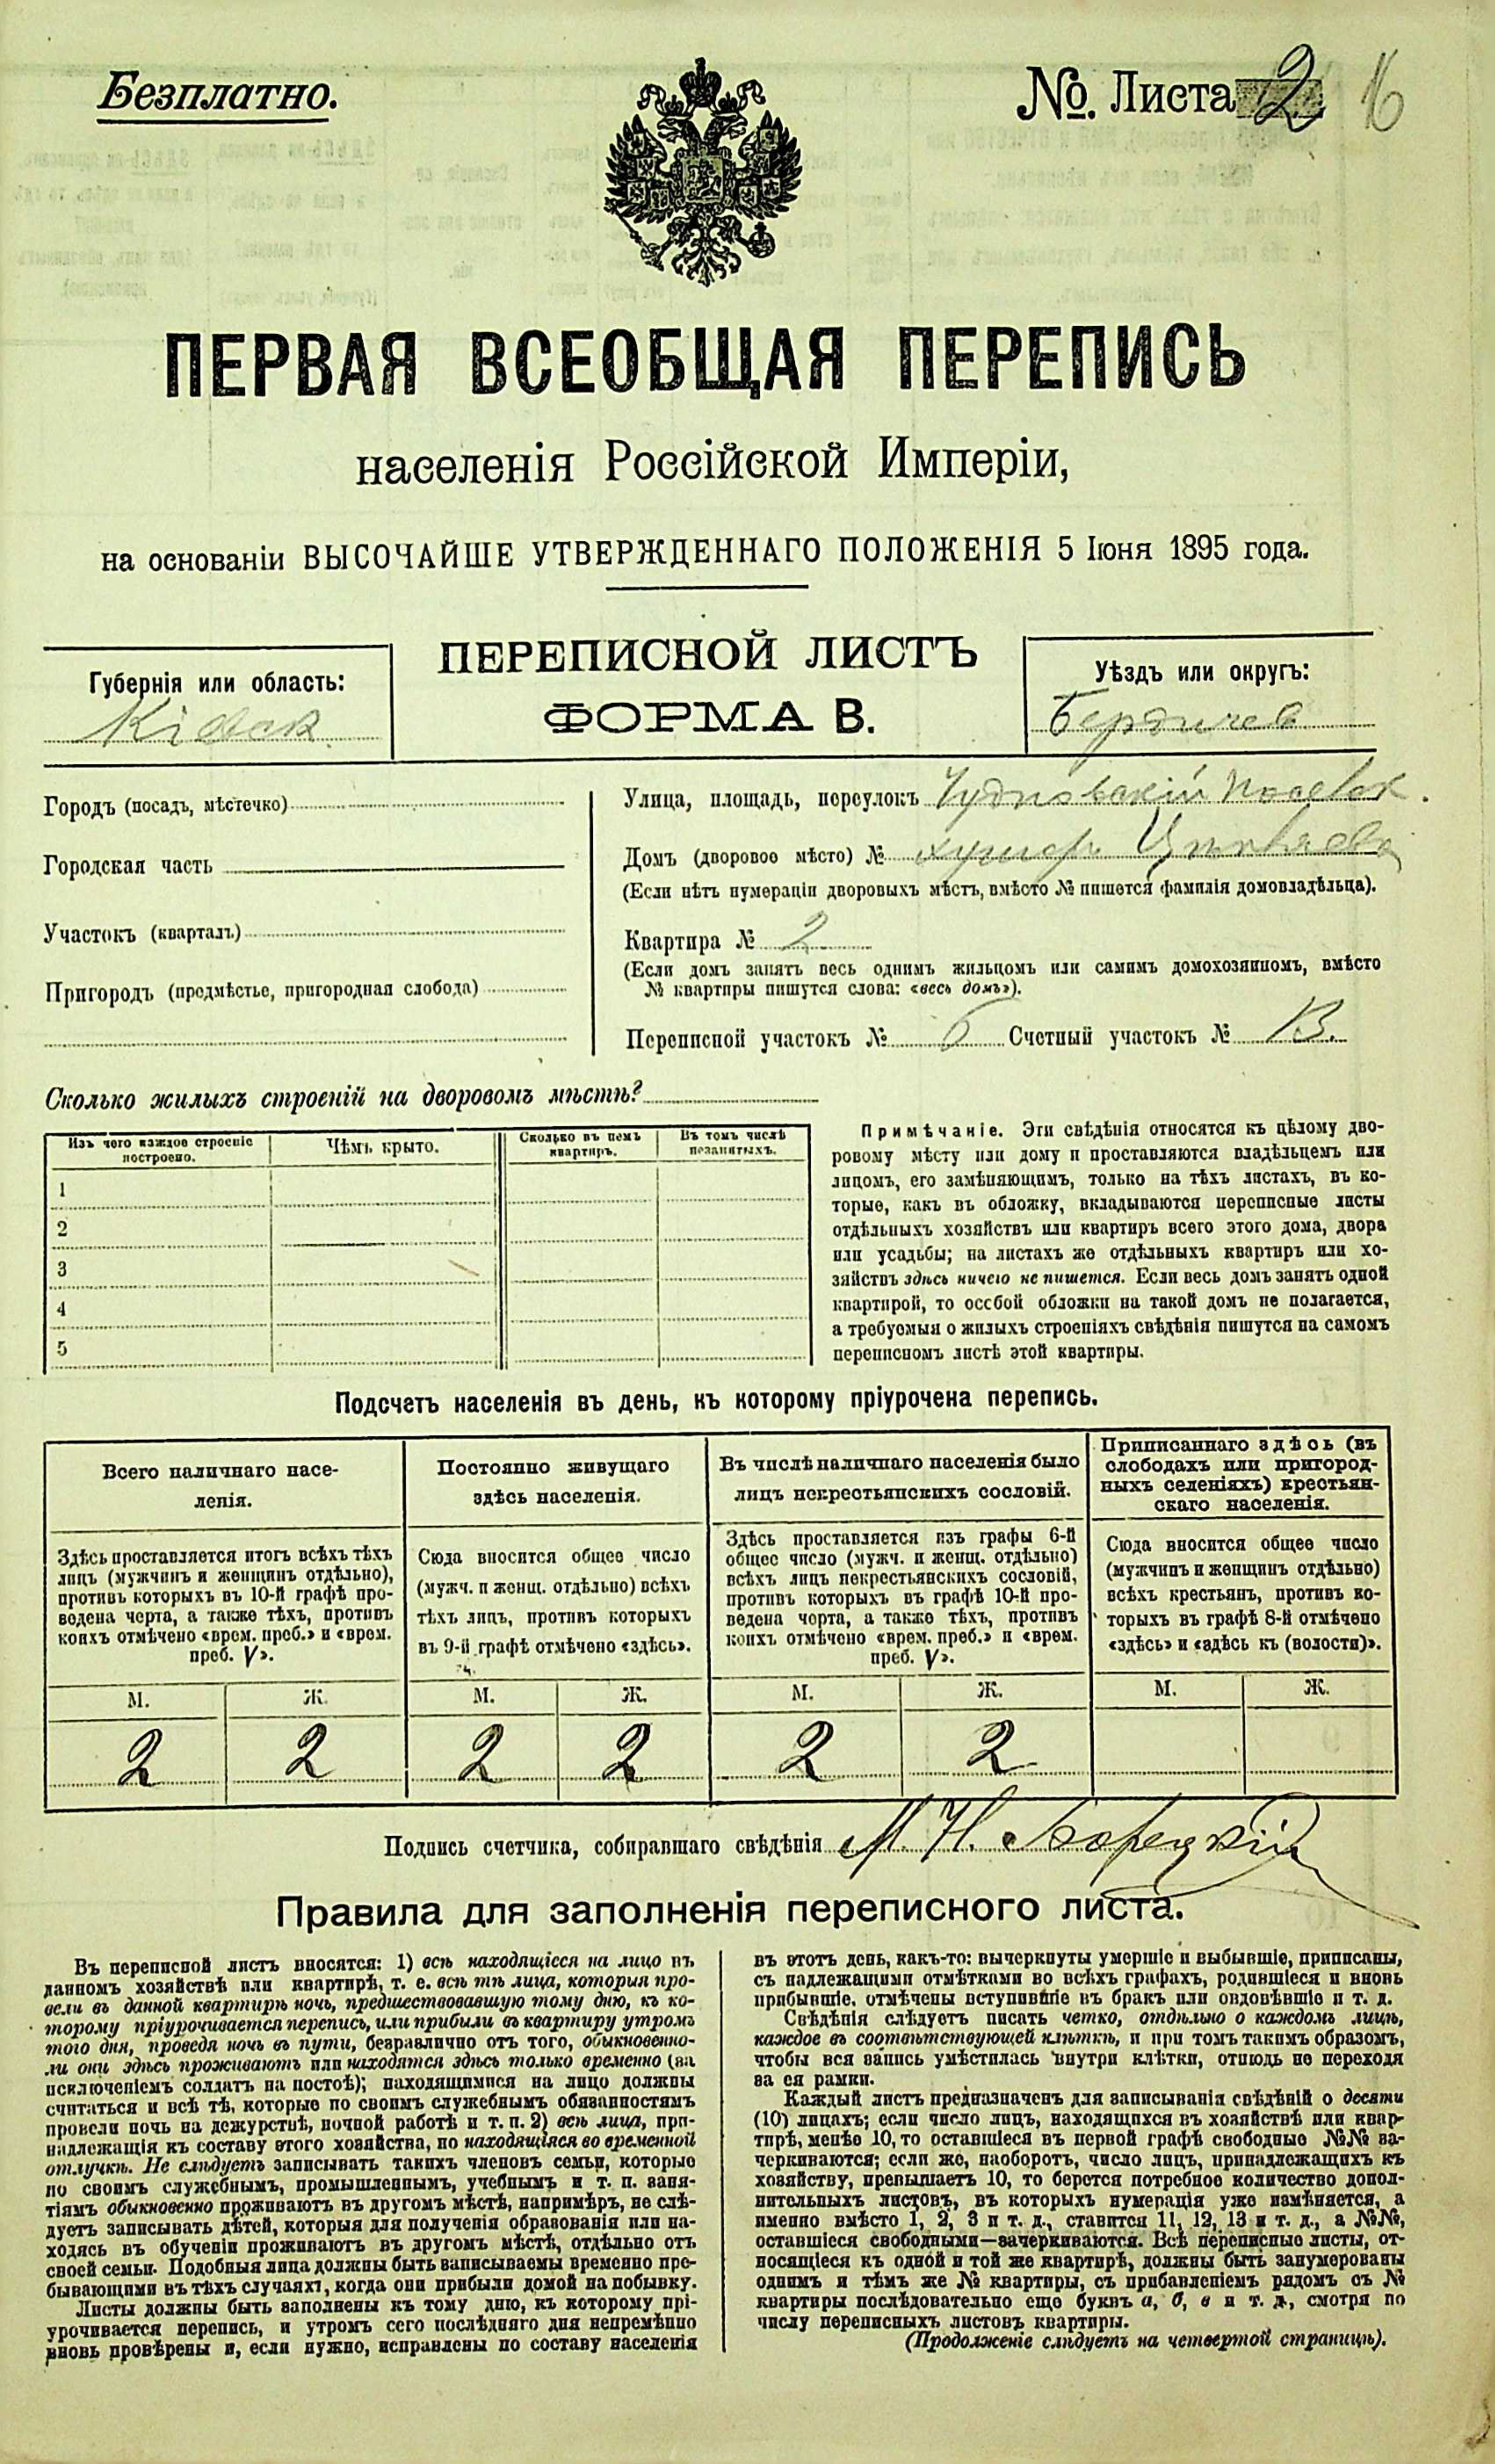 Безплатно.
№. Листа 2 16
ПЕРВАЯ ВСЕОБЩАЯ ПЕРЕПИСЬ
населенія Россійской Имперіи,
на основаніи ВЫСОЧАЙШЕ УТВЕРЖДЕННАГО ПОЛОЖЕНІЯ 5 Іюня 1895 года.
Губернія или область:
Кіевск
ПЕРЕПИСНОЙ ЛИСТЪ
ФОРМА В.
Уѣздъ или округъ:
Бердичев
Городъ (посадъ, мѣстечко)
Городская часть
Участокъ (кварталъ)
Пригородъ (предмѣстье, пригородная слобода)
Улица, площадь, переулокъ Чудновскій
Домъ (дворовое мѣсто) № хуторъ
(Если нѣтъ нумераціи дворовыхъ мѣстъ, вмѣсто № пишется фамилія домовладѣльца).
Квартира № 2
(Если домъ занятъ весь однимъ жильцомъ или самимъ домохозяиномъ, вмѣсто
№ квартиры пишутся слова: «весь домъ»).
Переписной участокъ № 6 Счетный участокъ № 13.
Сколько жилыхъ строеній на дворовомъ мѣстѣ?
Изъ чего каждое строеніе построено.
Чѣмъ крыто.
Сколько въ немъ квартиръ.
Въ томъ числѣ незанятыхъ.
1
2
3
4
5
Примѣчаніе. Эти свѣдѣнія относятся къ цѣлому дво-
ровому мѣсту или дому и проставляются владѣльцемъ или
лицомъ, его замѣняющимъ, только на тѣхъ листахъ, въ ко-
торые, какъ въ обложку, вкладываются переписные листы
отдѣльныхъ хозяйствъ или квартиръ всего этого дома, двора
или усадьбы; на листахъ же отдѣльныхъ квартиръ или хо-
зяйствъ здѣсь ничего не пишется. Если весь домъ занятъ одной
квартирой, то особой обложки на такой домъ не полагается,
а требуемыя о жилыхъ строеніяхъ свѣдѣнія пишутся на самомъ
переписномъ листѣ этой квартиры.
Подсчетъ населенія въ день, къ которому пріурочена перепись.
Всего наличнаго насе-
ленія.
Постоянно живущаго
здѣсь населенія.
Въ числѣ наличнаго населенія было
лицъ некрестьянскихъ сословій.
Приписаннаго здѣсь (въ
слободахъ или пригород-
ныхъ селеніяхъ) крестьян-
скаго населенія.
Здѣсь проставляется итогъ всѣхъ тѣхъ
лицъ (мужчинъ и женщинъ отдѣльно),
противъ которыхъ въ 10-й графѣ про-
ведена черта, а также тѣхъ, противъ
коихъ отмѣчено «врем. преб.» и «врем.
преб. V».
Сюда вносится общее число
(мужч. и женщ. отдѣльно) всѣхъ
тѣхъ лицъ, противъ которыхъ
въ 9-й графѣ отмѣчено «здѣсь».
Здѣсь проставляется изъ графы 6-й
общее число (мужч. и женщ. отдѣльно)
всѣхъ лицъ некрестьянскихъ сословій,
противъ которыхъ въ графѣ 10-й про-
ведена черта, а также тѣхъ, противъ
коихъ отмѣчено «врем. преб.» и «врем.
преб. V».
Сюда вносится общее число
(мужчинъ и женщинъ отдѣльно)
всѣхъ крестьянъ, противъ ко-
торыхъ въ графѣ 8-й отмѣчено
«здѣсь» и «здѣсь къ (волости)».
М. Ж. М. Ж. М. Ж. М. Ж.
2 2 2 2 2 2
Подпись счетчика, собиравшаго свѣдѣнія М. Н.
Правила для заполненія переписного листа.
Въ переписной листъ вносятся: 1) всѣ находящіеся на лицо въ
данномъ хозяйствѣ или квартирѣ, т. е. всѣ тѣ лица, которыя про-
вели въ данной квартирѣ ночь, предшествовавшую тому дню, къ ко-
торому пріурочивается перепись, или прибыли въ квартиру утромъ
того дня, проведя ночь въ пути, безразлично отъ того, обыкновенно-
ли они здѣсь проживаютъ или находятся здѣсь только временно (за
исключеніемъ солдатъ на постоѣ); находящимися на лицо должны
считаться и всѣ тѣ, которые по своимъ служебнымъ обязанностямъ
провели ночь на дежурствѣ, ночной работѣ и т. п. 2) всѣ лица, при-
надлежащія къ составу этого хозяйства, но находящіяся во временной
отлучкѣ. Не слѣдуетъ записывать такихъ членовъ семьи, которые
по своимъ служебнымъ, промышленнымъ, учебнымъ и т. п. заня-
тіямъ обыкновенно проживаютъ въ другомъ мѣстѣ, напримѣръ, не слѣ-
дуетъ записывать дѣтей, которыя для полученія образованія или на-
ходясь въ обученіи проживаютъ въ другомъ мѣстѣ, отдѣльно отъ
своей семьи. Подобныя лица должны быть записываемы временно пре-
бывающими въ тѣхъ случаяхъ, когда они прибыли домой на побывку.
Листы должны быть заполнены къ тому дню, къ которому прі-
урочивается перепись, и утромъ сего послѣдняго дня непремѣнно
вновь провѣрены и, если нужно, исправлены по составу населенія
въ этотъ день, какъ-то: вычеркнуты умершіе и выбывшіе, приписаны,
съ надлежащими отмѣтками во всѣхъ графахъ, родившіеся и вновь
прибывшіе, отмѣчены вступившіе въ бракъ или овдовѣвшіе и т. д.
Свѣдѣнія слѣдуетъ писать четко, отдѣльно о каждомъ лицѣ,
каждое въ соотвѣтствующей клѣткѣ, и при томъ такимъ образомъ,
чтобы вся запись умѣстилась внутри клѣтки, отнюдь не переходя
за ея рамки.
Каждый листъ предназначенъ для записыванія свѣдѣній о десяти
(10) лицахъ; если число лицъ, находящихся въ хозяйствѣ или квар-
тирѣ, менѣе 10, то оставшіеся въ первой графѣ свободные №№ за-
черкиваются; если же, наоборотъ, число лицъ, принадлежащихъ къ
хозяйству, превышаетъ 10, то берется потребное количество допол-
нительныхъ листовъ, въ которыхъ нумерація уже измѣняется, а
именно вмѣсто 1, 2, 3 и т. д., ставится 11, 12, 13 и т. д., а №№,
оставшіеся свободными—зачеркиваются. Всѣ переписные листы, от-
носящіеся къ одной и той же квартирѣ, должны быть занумерованы
однимъ и тѣмъ же № квартиры, съ прибавленіемъ рядомъ съ №
квартиры послѣдовательно еще буквъ а, б, в и т. д., смотря по
числу переписныхъ листовъ квартиры.
(Продолженіе слѣдуетъ на четвертой страницѣ).